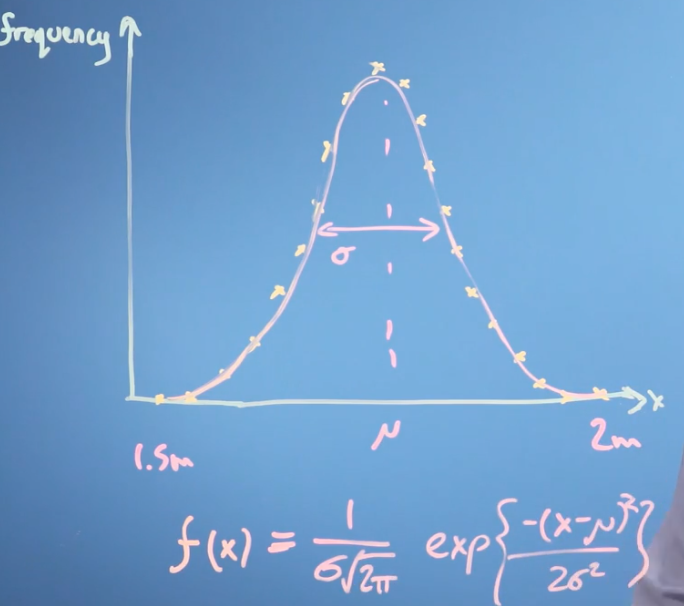 frequency
σ
x
μ
1.5m
2m
f(x) = 1/(σ√2π) exp{-(x-μ)²/2σ²}